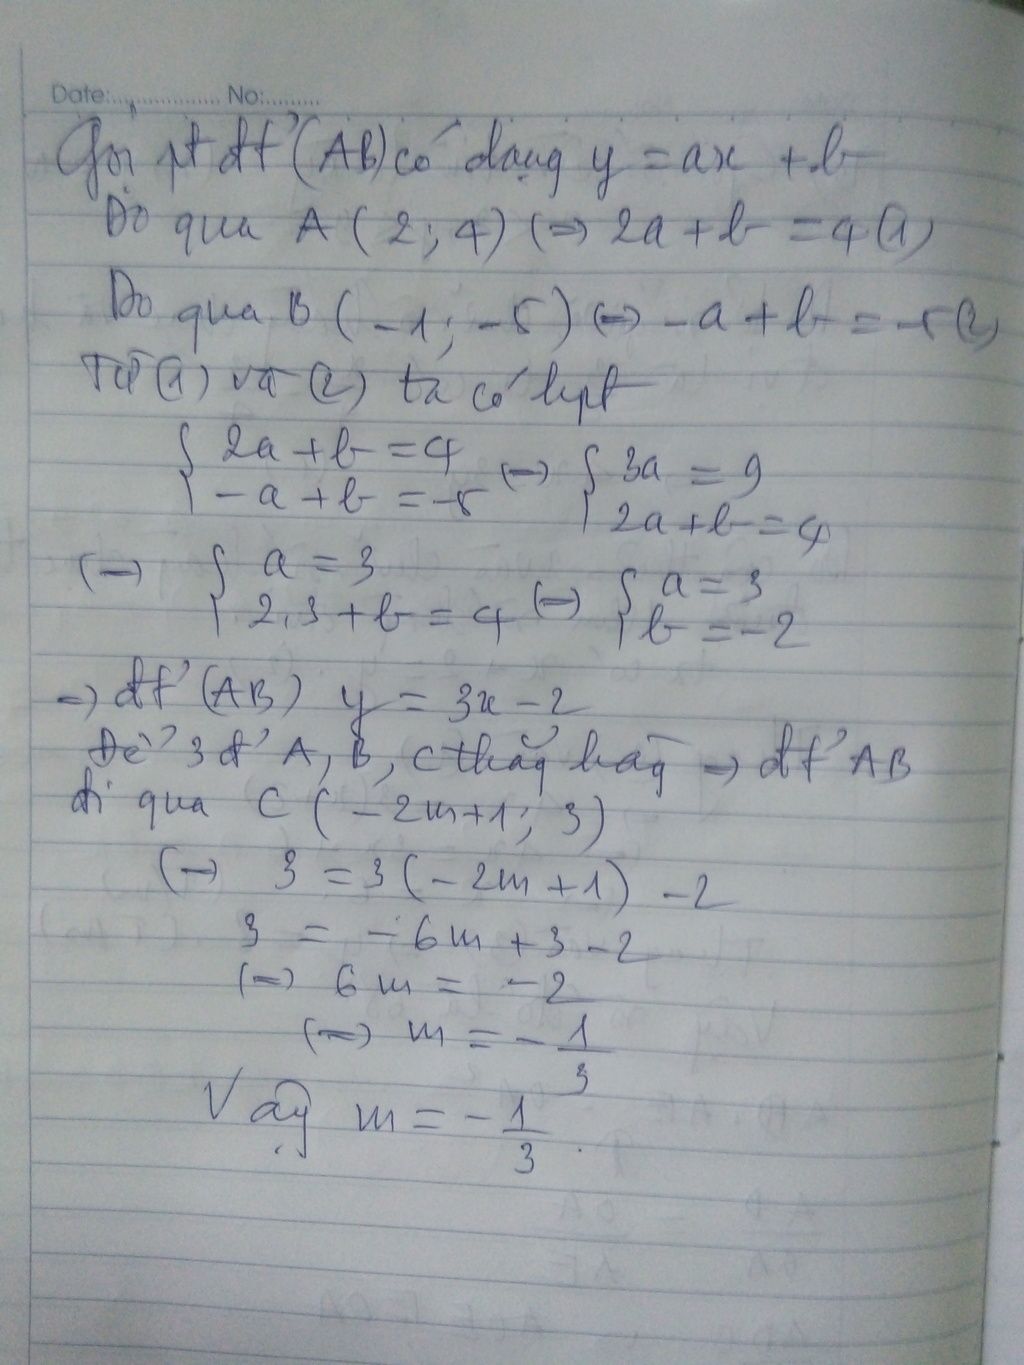 Date:................... No:.........
Gọi pt đt' (AB) có dạng y = ax + b
Do qua A ( 2 ; 4 ) (=) 2a + b = 4 (1)
Do qua B ( -1 ; -5 ) (=) -a + b = -5 (2)
Từ (1) và (2) ta có hpt
{ 2a + b = 4 (=) { 3a = 9
-a + b = -5 2a + b = 4
(=) { a = 3 (=) { a = 3
2.3 + b = 4 b = -2
=) đt' (AB) y = 3x - 2
Để 3 đ' A, B, C thẳg hàg => đt' AB
đi qua C ( -2m+1 ; 3 )
(=) 3 = 3 ( -2m + 1 ) - 2
3 = -6m + 3 - 2
(=) 6m = -2
(=) m = -1/3
Vậy m = -1/3 .